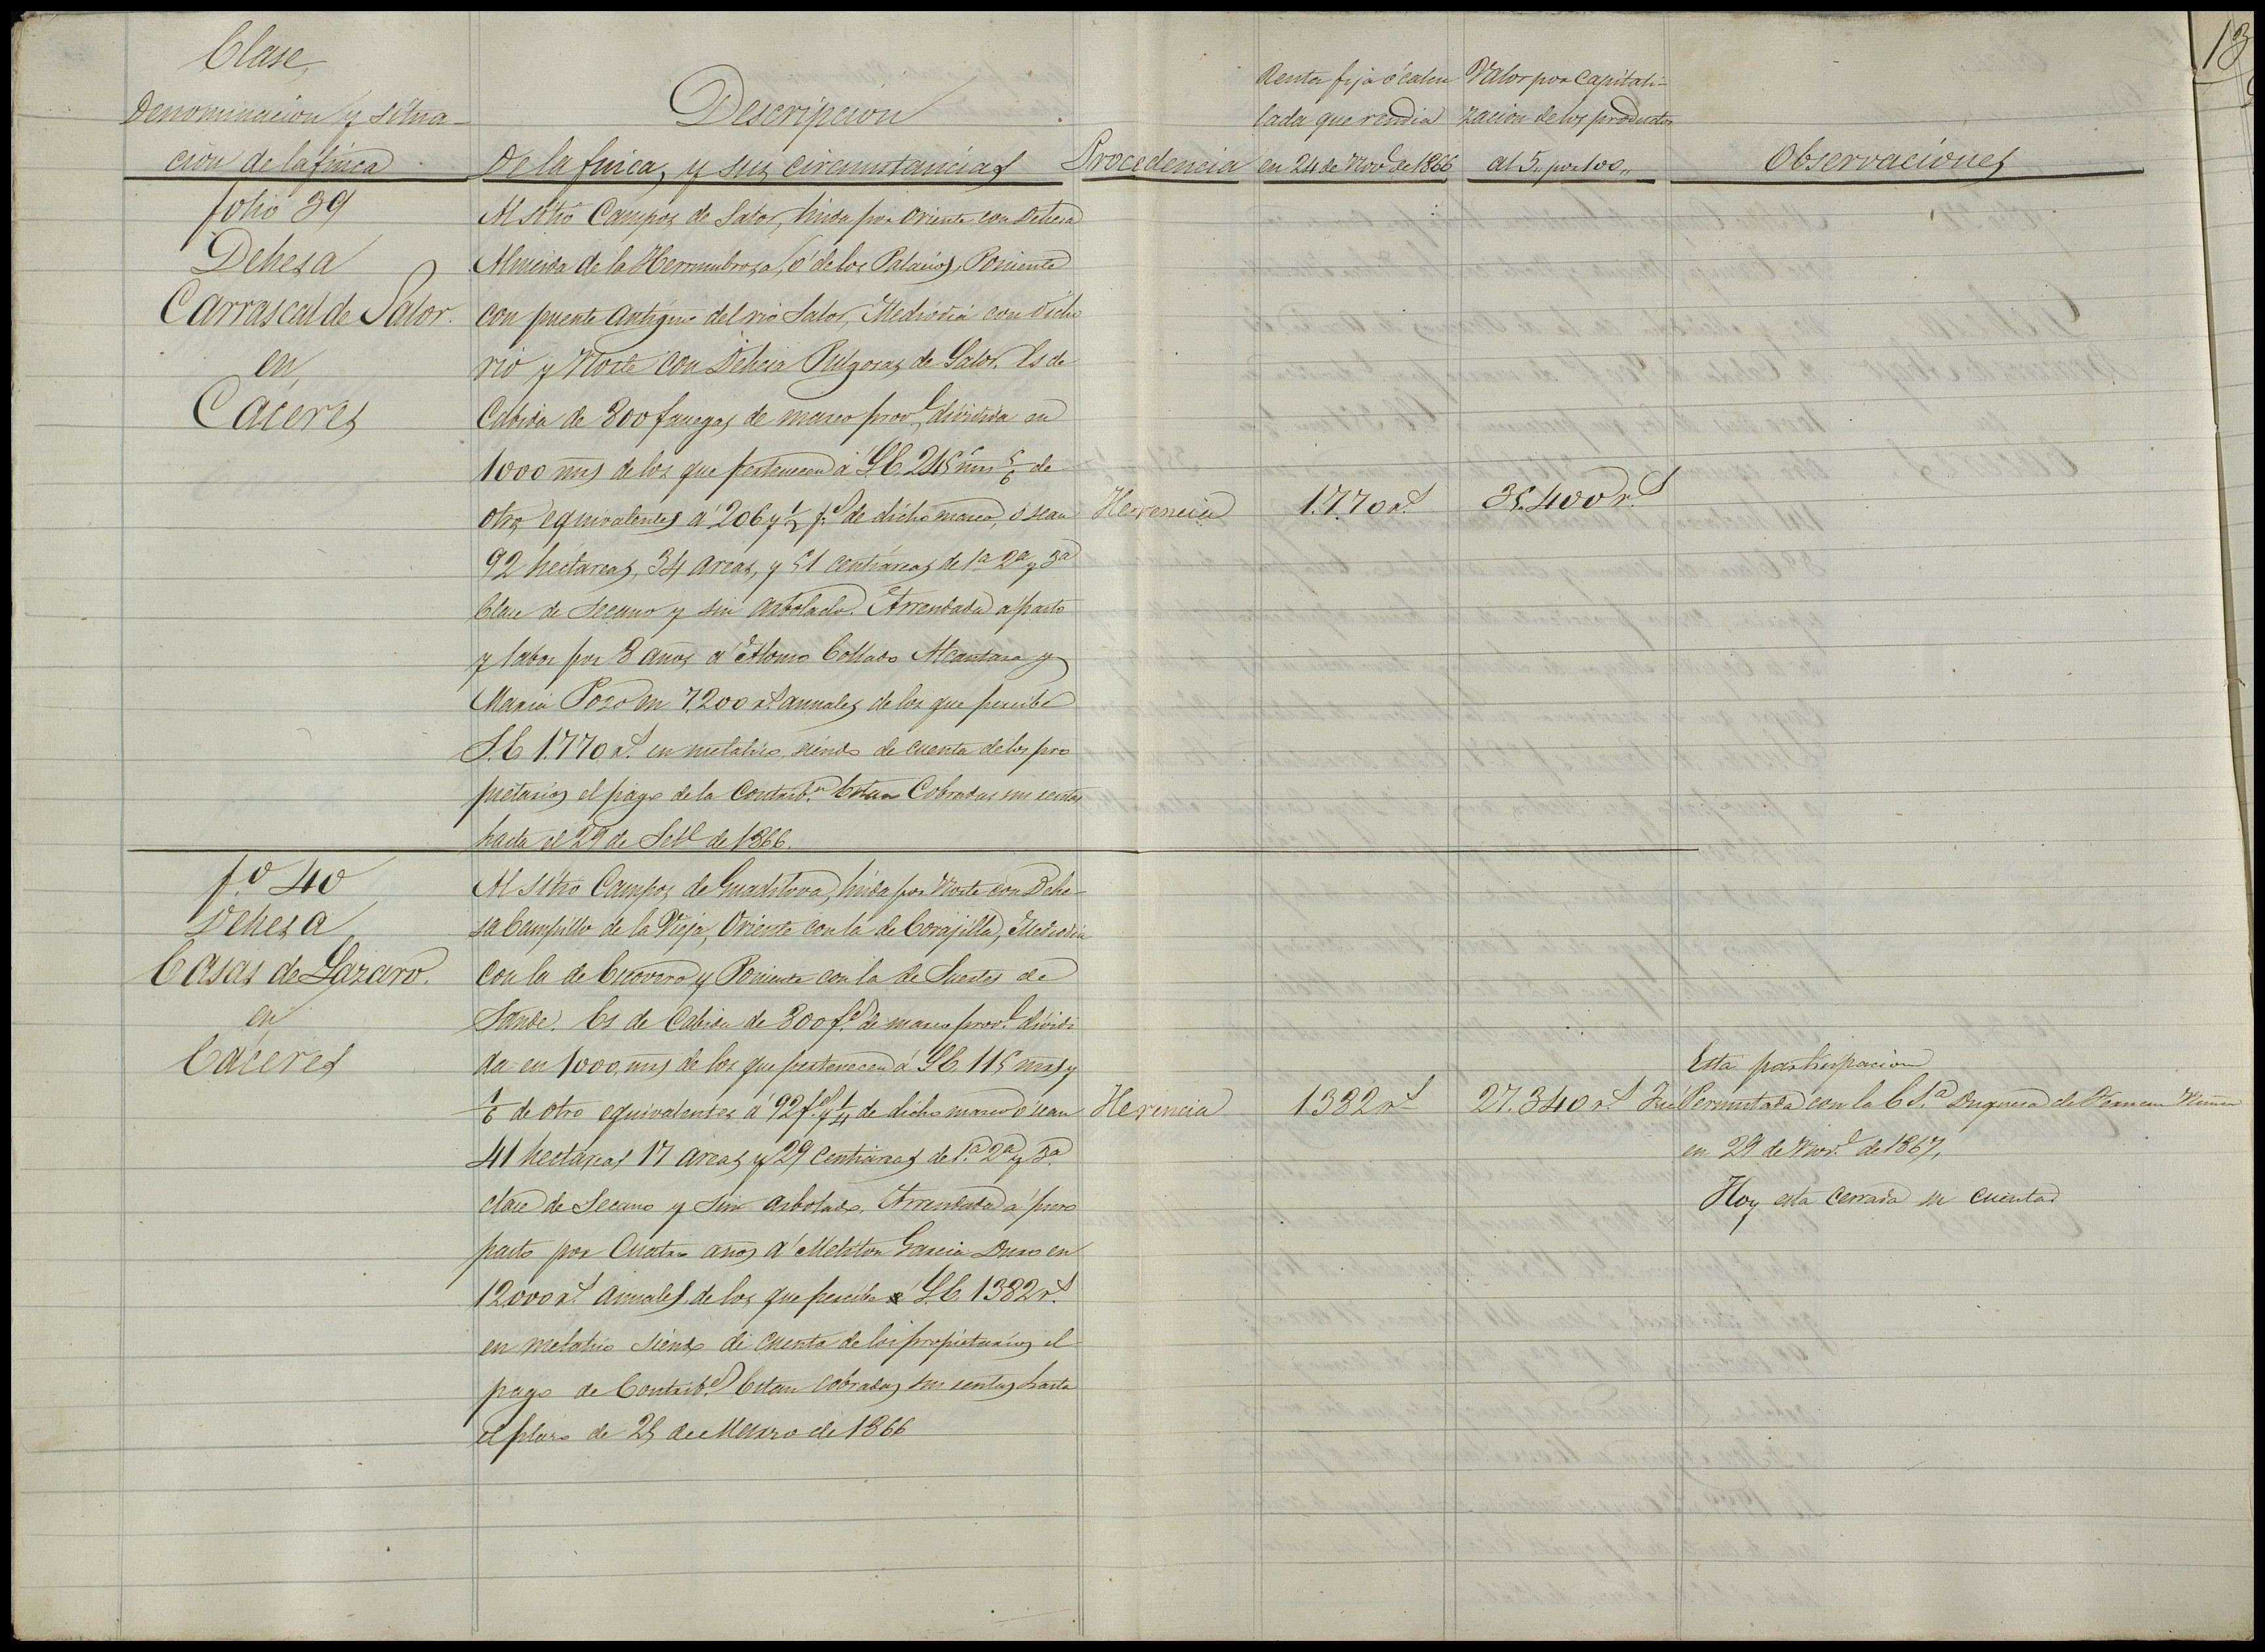 13
Clase,
Denominacion y situa-
cion de la finca
Descripcion
De la finca, y sus circunstancias
Procedencia
Renta fija ó calcu
lada que rendia
en 24 de Nov.e de 1866
Valor por capitali-
zacion de los productos
al 5,, por 100,,
Observaciones
folio 39
Dehesa
Carrascal de Salor.
en
Cáceres
Al sitio Campos de Salor, linda por Oriente con Dehesa
Almeida de la Herrumbrosa, ó de los Palacios, Poniente
con puente antiguo del rio Salor, Mediodia con dicho
rio y Norte con Dehesa Pulgosas de Salor. Es de
Cabida de 800 fanegas de marco prov.l dividida en
1000 mrs de los que pertenecen á S.E. 245 mrs 5/6 de
otro equivalentes á 206 y 1/2 f.s de dicho marco, ó sean
92 hectareas, 34 areas, y 51 centiáreas de 1.a 2.a y 3.a
Clase de Secano y sin arbolado. Arrendada a pasto
y labor por 8 años á Alonso Collado Alcantara y
Maria Pozo en 7.200 r.s anuales de los que percibe
S.E. 1.770 r.s en metalico, siendo de cuenta de los pro
pietarios el pago de la Contrib.n Estan Cobradas sus rentas
hasta el 29 de Set.e de 1866.
Herencia
1.770 r.s
35.400 r.s
f.o 40
Dehesa
Casas de Lazaro.
en
Cáceres
Al sitio Campos de Guadilova, linda por Norte con Dehe-
sa Campillo de la Vieja, Oriente con la de Corajilla, Mediodia
con la de y Poniente con la de Suertes de
Sande. Es de Cabida de 800 f.s de marco prov.l dividi
da en 1000 mrs de los que pertenecen á S.E. 115 mrs y
1/6 de otro equivalentes á 92 f.s y 1/4 de dicho marco ó sean
41 hectáreas 17 areas y 29 centiareas de 1.a 2.a y 3.a
clase de Secano y sin arbolado. Arrendada á puro
pasto por Cuatro años á Meliton Garcia Duro en
12.000 r.s anuales de los que percibe S.E. 1382 r.s
en metalico siendo de cuenta de los propietarios el
pago de Contrib.n Estan cobradas sus rentas hasta
el plazo de 25 de Marzo de 1866
Herencia
1.382 r.s
27.340 r.s
Esta participacion
Fué Permutada con la E.S.a Duquesa de Fernan Nuñez
en 29 de Nov.e de 1867,
Hoy esta cerrada su cuenta